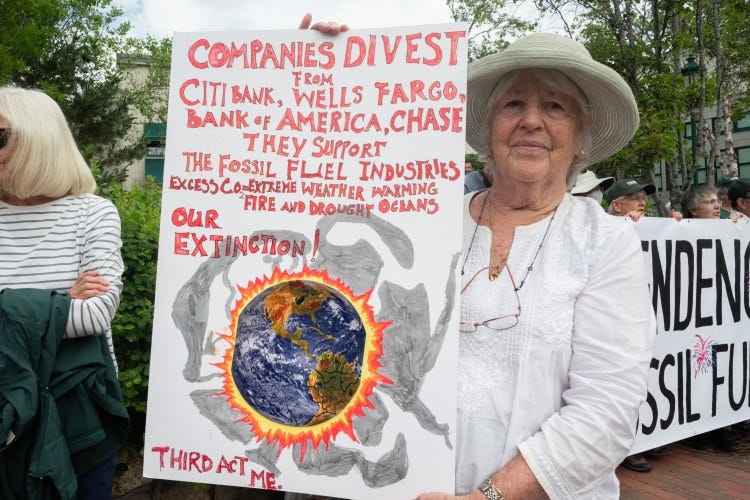 COMPANIES DIVEST
FROM
CITIBANK, WELLS FARGO,
BANK OF AMERICA, CHASE
THEY SUPPORT
THE FOSSIL FUEL INDUSTRIES
EXCESS CO₂=EXTREME WEATHER WARMING
FIRE AND DROUGHT OCEANS
OUR
EXTINCTION!
THIRD ACT ME.
ENDENC
SSIL FU